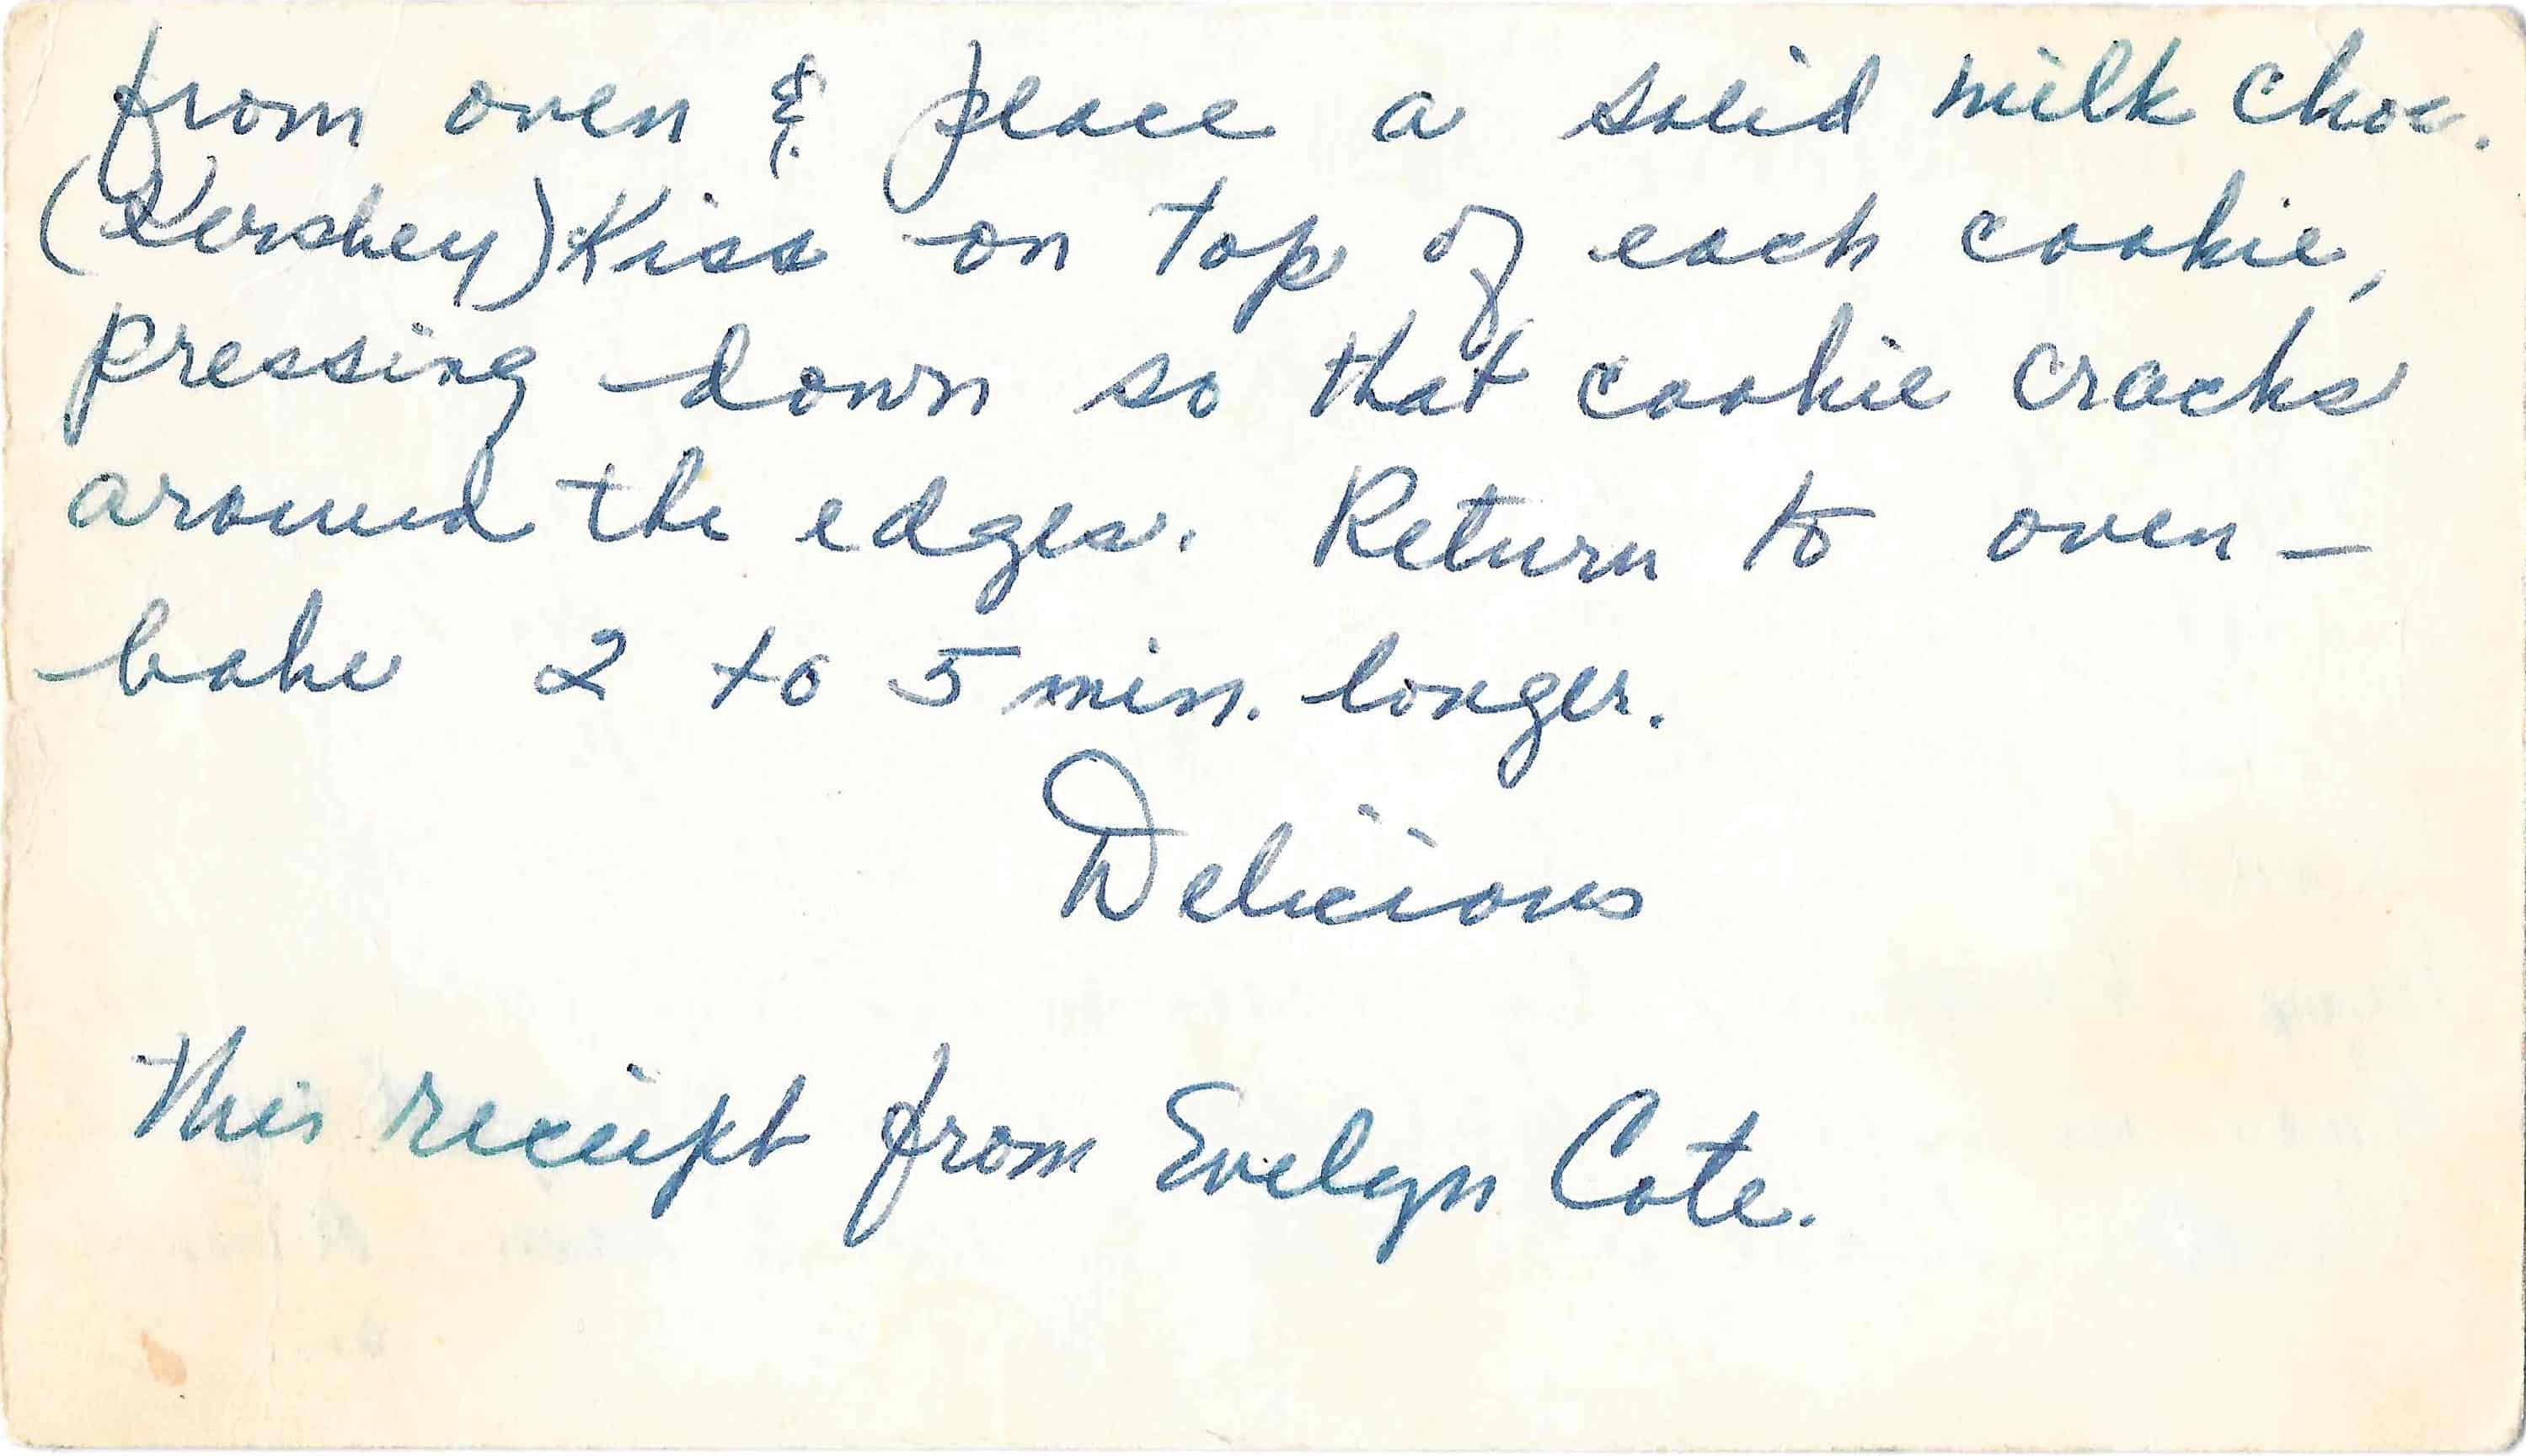 from oven & place a solid milk choc.
(Hershey) Kiss on top of each cookie,
pressing down so that cookie cracks
around the edges. Return to oven –
bake 2 to 5 min. longer.
Delicious
This receipt from Evelyn Cote.